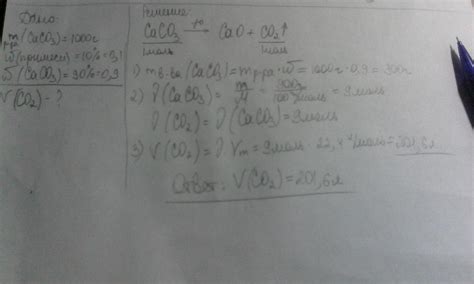 Дано:
m р-ра (CaCO₃) = 1000г
ω (примеси) = 10% = 0,1
ω (CaCO₃) = 90% = 0,9
V(CO₂) - ?
Решение:
CaCO₃ →t° CaO + CO₂↑
1моль 1моль
1) m в-ва (CaCO₃) = m р-ра · ω = 1000г · 0,9 = 900г
2) ν (CaCO₃) = m/M = 900г/100г/моль = 9моль
ν (CO₂) = ν (CaCO₃) = 9моль
3) V(CO₂) = ν · Vm = 9моль · 22,4 л/моль = 201,6л
Ответ: V(CO₂) = 201,6л